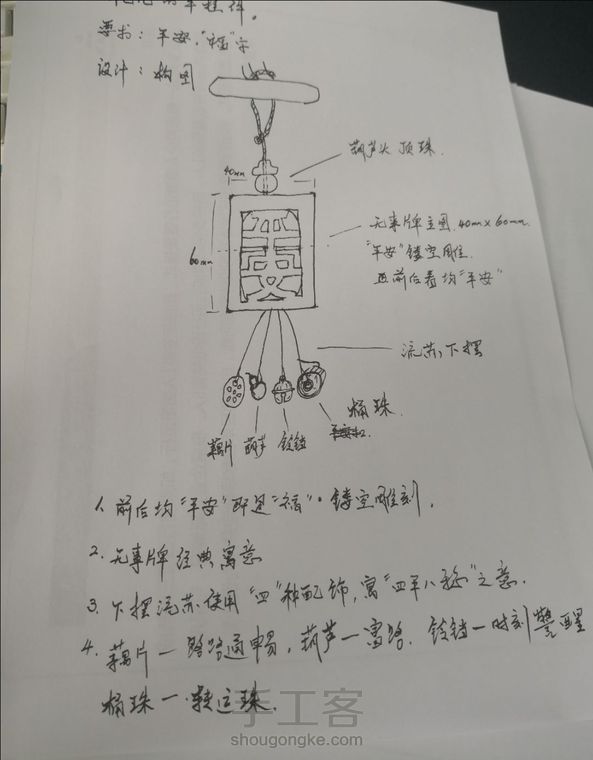 的车挂件。
要求：平安，“福”字
设计：构图
葫芦头 顶珠
40mm
60mm
无事牌主图 40mm×60mm
“平安”镂空雕
且前后看均“平安”
流苏下摆
藕片 葫芦 铃铛
桶珠
1、前后均“平安”即是“福”。镂空雕刻。
2、无事牌经典寓意
3、下摆流苏使用“四”种配饰，寓“四平八稳”之意。
4、藕片—路路通畅，葫芦—富路，铃铛—时刻警醒
桶珠—转运珠。
手工客
shougongke.com